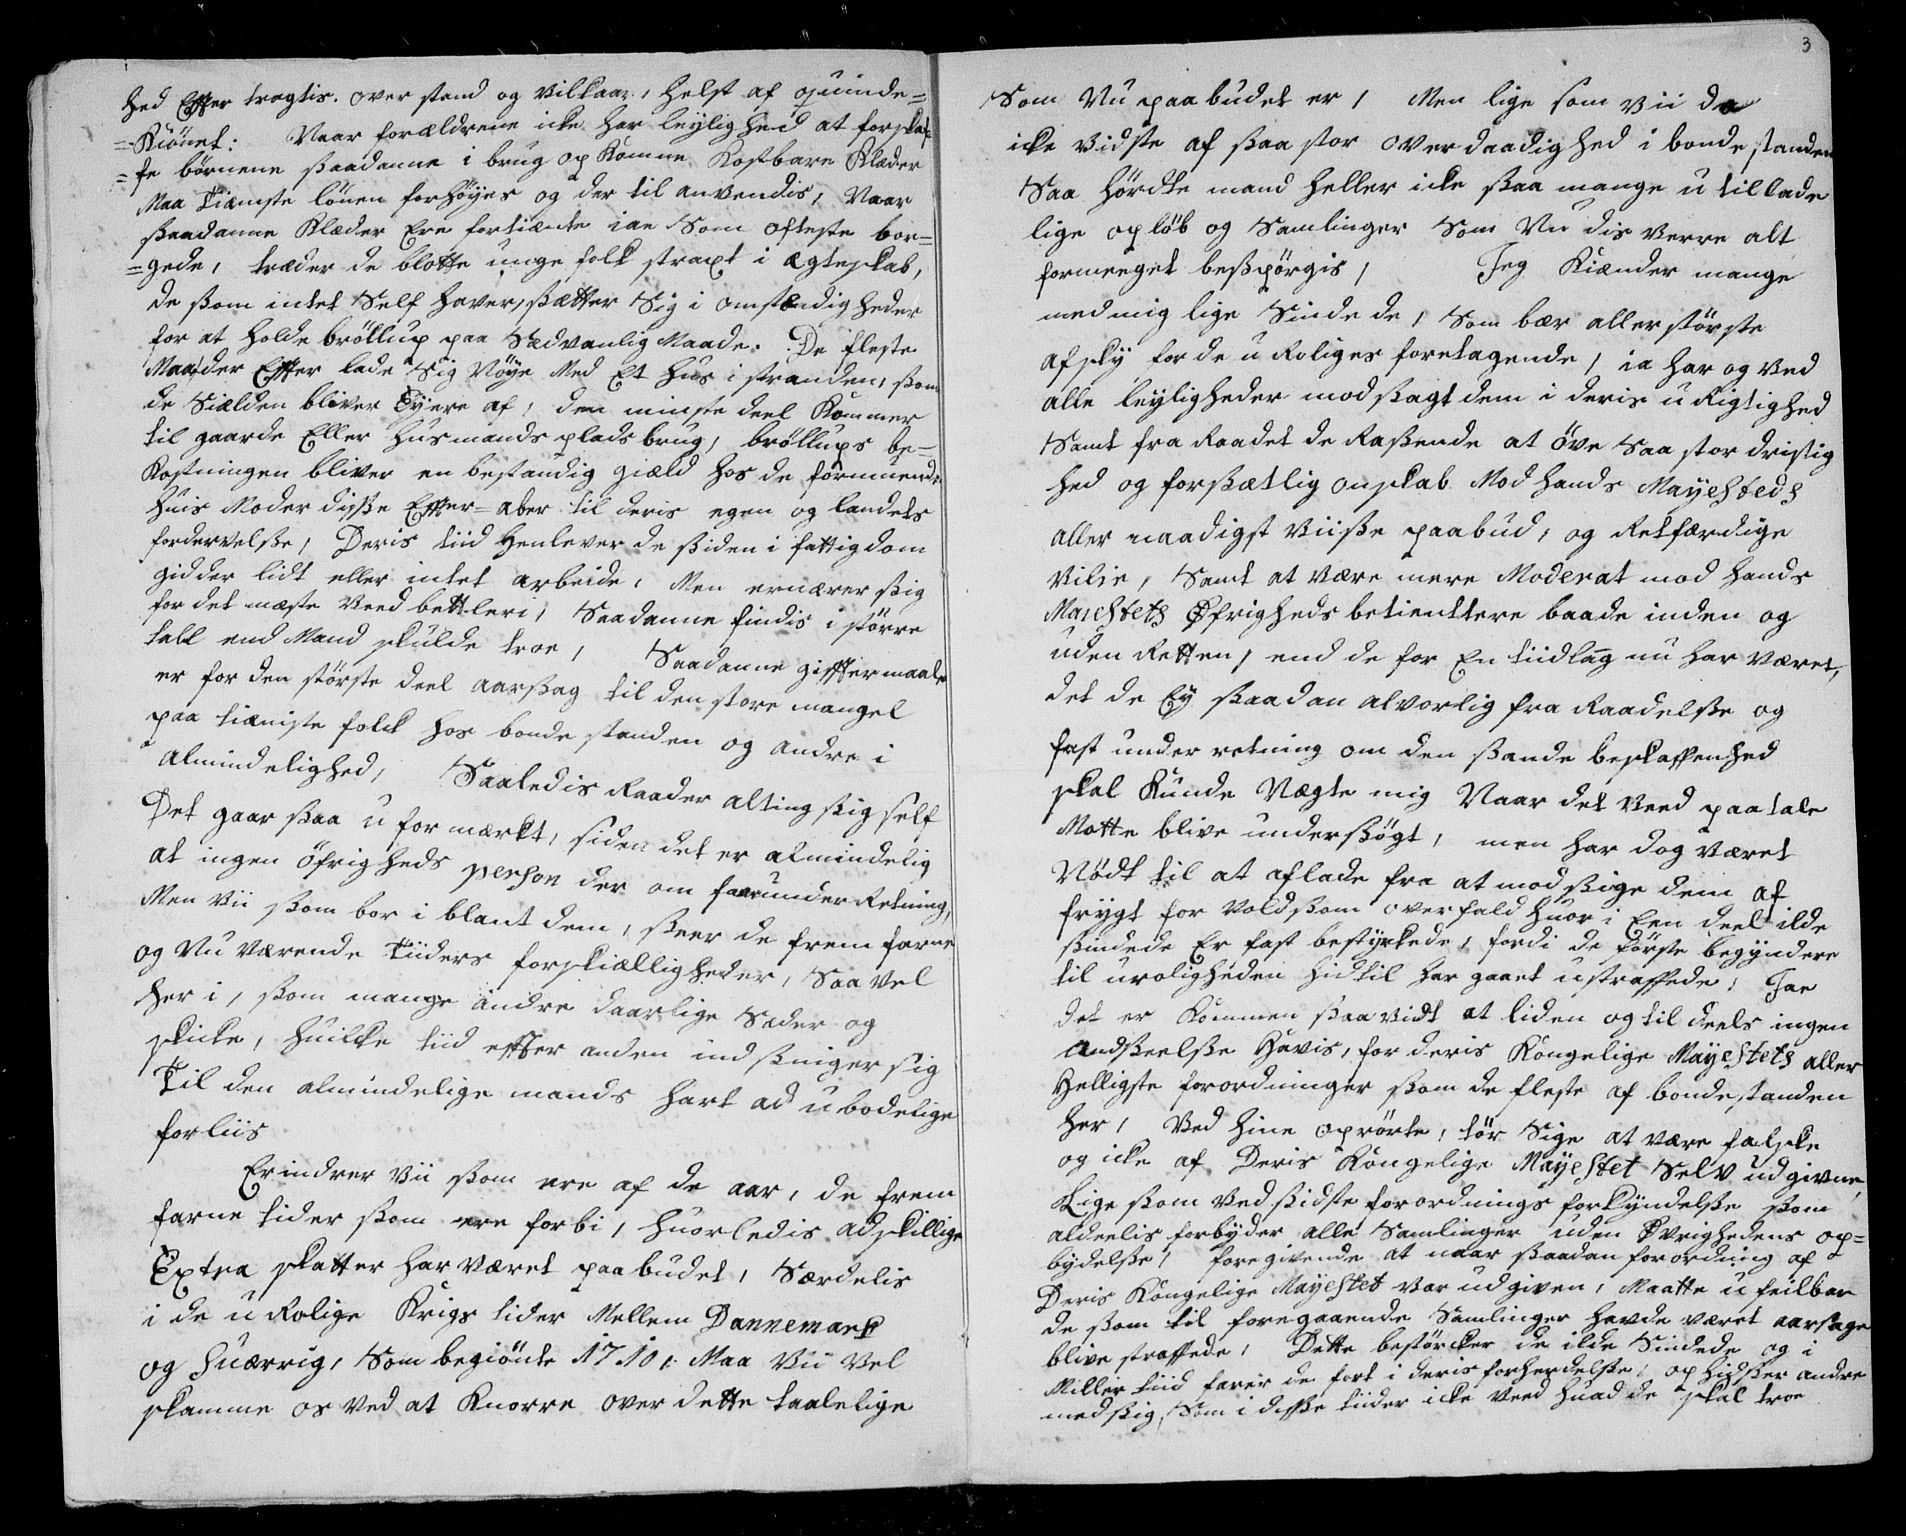 hed Efter tragtis. over stand og vilkaar, helst af qvinde=
=Kiönet: Naar forældrene icke har leylighed at forskaf=
=fe börnene ßaadanne i brug op Komne Kostbare Klæder
Maa Tiænste lönen forhöyes og der til anvendis, Naar
ßaadanne Klæder Ere fortiænte iae Som ofteste bor=
=gede, træder de blotte unge folk straxt i ægteskab,
de ßom intet Self haver, ßætter Sig i omstændigheder
for at holde bröllup paa Sædvanlig Maade. De fleste
Maa der Efter lade Sig Nöye Med Et hus i stranden, ßom
de Siælden bliver Eyere af, den minste deel Kommer
til gaarde Eller husmands plads brug, bröllups be=
Kostningen bliver en bestandig giæld hos de formuende
huis Moder diße Efter=aber til deris egen og landets
fordervelße, Deris tiid henlever de ßiden i fattigdom
gidder lidt eller intet arbeide, Men ernærer ßig
for det mæste Veed bettleri, Saadanne findis i större
tall end Mand skulde troe, Saadanne gifftermaale
er for den störste deel aarßag til den store mangel
paa tiæniste folck hos bonde standen og andre i
almindelighed, Saaledis Raader alting ßig self
Det gaar ßaa u formærkt, siden det er almindelig
at ingen öfrigheds person der om faar underRetning,
Men Vii ßom bor i blant dem, ßeer de frem farne
og Nu værende Tiiders forskiælligheder, Saa vel
her i, ßom mange andre daarlige Sæder og
skicke, huilcke tiid efter anden ind ßniger sig
Til den almindelige mands hart ad u bodelige
forliis
Erindrer Vii ßom ere af de aar, de frem
farne tider ßom ere forbi, huorledis adskillige
Extra skatter har været paabudet, Særdelis
i de u Rolige Krigs tider Mellem Dannemark
og Suerrig, Som begiönte 1710. Maa Vii vel
skamme os Ved at Knorre over dette taalelige
3
Som Nu paabudet er, Men lige som Vii da
icke Vidste af ßaa stor overdaadighed i bonde standen
Saa hördte mand heller icke ßaa mange u tillade
lige oplöb og Samlinger Som Nu dis verre alt
formeeget beßpörgis, Jeg Kiænder mange
med mig lige Sinde de, Som bær allerstörste
afsky for de u Roliges foretagende, ia har og Ved
alle leyligheder mod ßagt dem i deris u Rigtighed
Samt fra Raadet de Raßende at öve Saa stor dristig
hed og forßætlig onskab Mod hands Mayesteds
aller naadigst Viiße paabud, og Retfærdige
Vilie, Samt at være mere Moderat mod hands
Maiestets Øfrigheds betienttere baade inden og
uden Retten, end de for En tiidlag nu har været,
det de Ey ßaadan alvorlig fra Raadelße og
fast under retning om den ßande beskaffenhed
skal Kunde Nægte mig Naar det Veed paatale
Motte blive underßögt, men har dog været
Nödt til at aflade fra at modßige dem af
frygt for Voldßom overfald huor i Een deel ilde
ßindede Er fast bestyrkede, fordi de förste begyndere
til uroligheden hidtil har gaaet ustraffede, Jae
det er Kommen ßaa vidt at liden og til deels ingen
Andßeelße Havis, for deris Kongelige Mayestets aller
Helligste forordninger ßom de fleste af bondestanden
her, Ved hine oprörte, tör Sige at være falske
og icke af Deris Kongelige Mayestet Selv udgivne,
Lige ßom Ved ßidste forordnings forkyndelße ßom
aldeelis forbyder alle Samlinger uden Øvrighedens op=
bydelße, foregivende at naar ßaadan forordning af
Deris Kongelige Mayestet var udgiven, Maatte u feilbar
de ßom til foregaaende Samlinger havde været aarsage
blive straffede, Dette bestörcker de ilde Sindede og i
Miller tiid farer de fort i deris forherdelße, ophidßer andre
medßig, Som i diße tiider icke Veed huad de skal troe